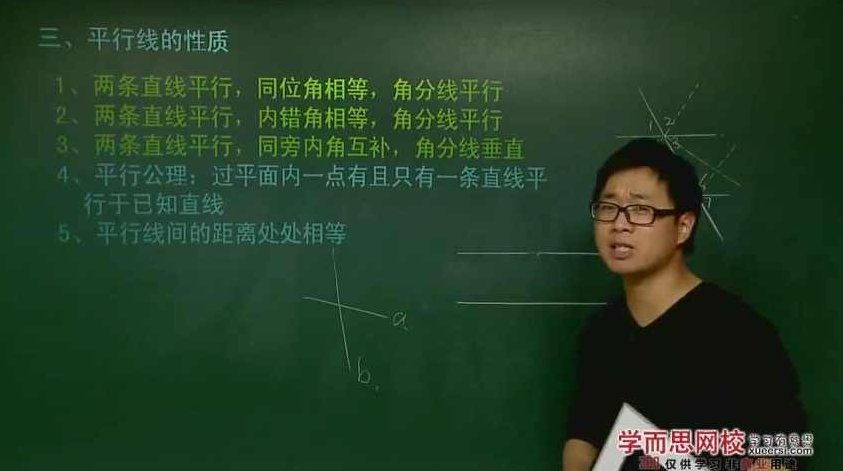 三、平行线的性质
1、两条直线平行，同位角相等，角分线平行
2、两条直线平行，内错角相等，角分线平行
3、两条直线平行，同旁内角互补，角分线垂直
4、平行公理：过平面内一点有且只有一条直线平
行于已知直线
5、平行线间的距离处处相等
1 2
3
a
b
学而思网校
学习有意思
xueersi.com
仅供学习 非商业用途